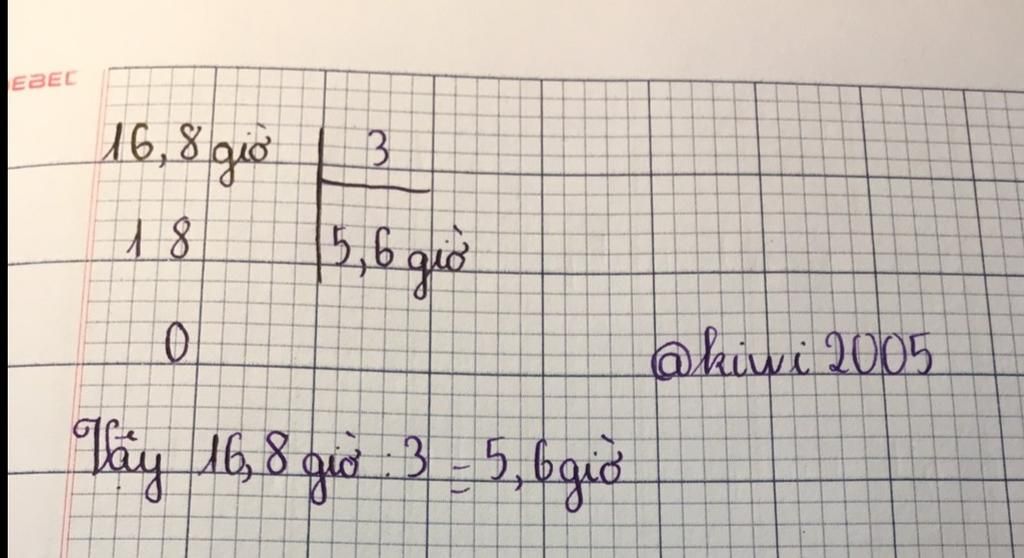 EBEC
16,8 giờ 3
18 5,6 giờ
0
@kiwi 2005
Vậy 16,8 giờ : 3 = 5,6 giờ